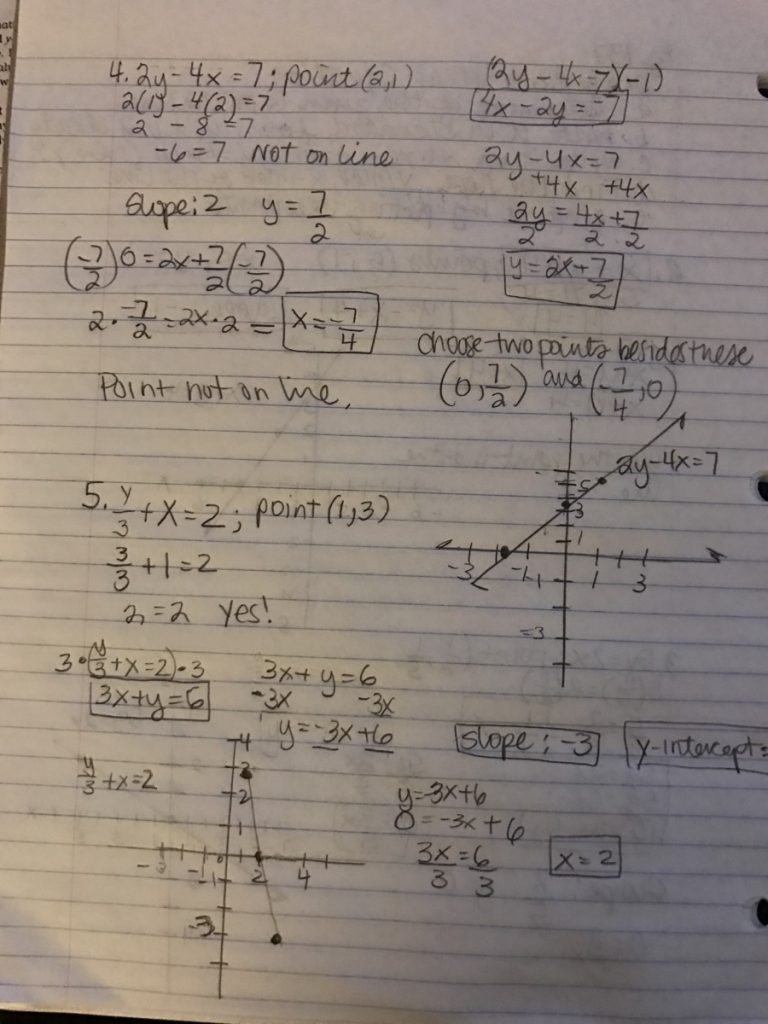 4. 2y - 4x = 7; point (2,1)
2(1) - 4(2) = 7
2 - 8 = 7
-6 = 7 Not on line
(2y - 4x = 7)(-1)
4x - 2y = -7
2y - 4x = 7
+4x +4x
2y/2 = 4x/2 + 7/2
y = 2x + 7/2
slope: 2 y = 7/2
(-7/2) 0 = 2x + 7/2 (-7/2)
2 · -7/2 = 2x · 2 = x = -7/4
Point not on line,
choose two points besides these
(0, 7/2) and (-7/4, 0)
2y - 4x = 7
5
3
1
-3 -1 1 3
-1
-3
5. y/3 + x = 2; point (1,3)
3/3 + 1 = 2
2 = 2 yes!
3 · (y/3 + x = 2) · 3
3x + y = 6
3x + y = 6
-3x -3x
y = -3x + 6
slope: -3
y-intercept=
y/3 + x = 2
4
3
2
1
-1 2 4
-1
-3
y = -3x + 6
0 = -3x + 6
3x/3 = 6/3
x = 2